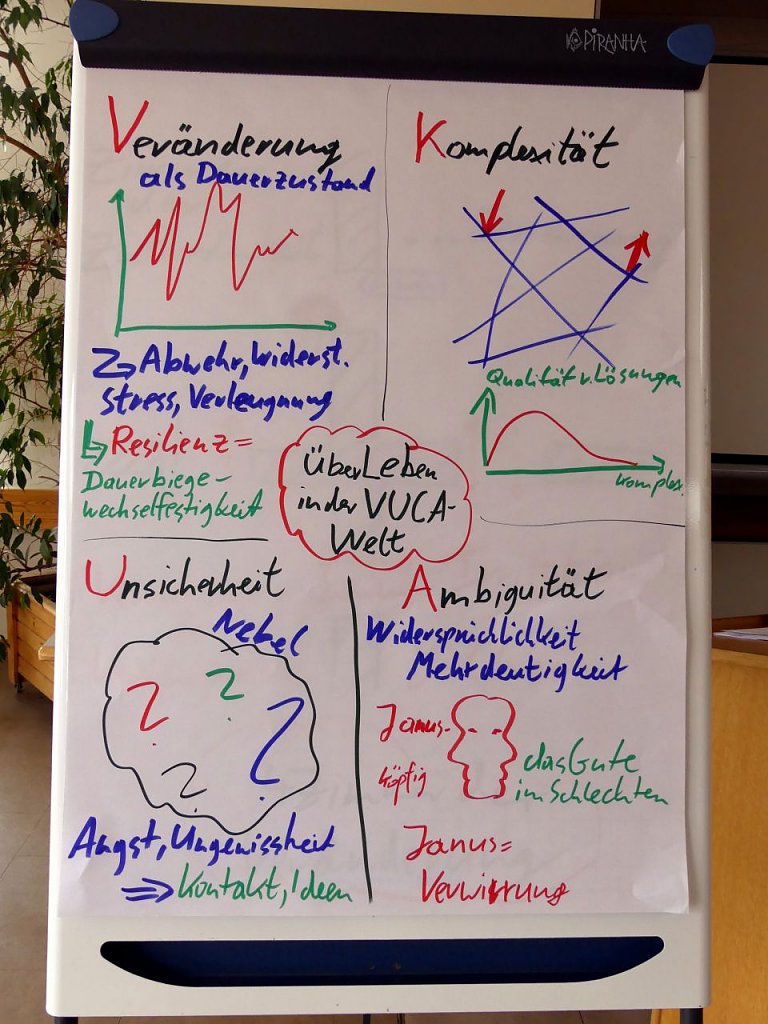 PiRANHA
Veränderung
als Dauerzustand
Abwehr, Widerst.
Stress, Verleugnung
Resilienz =
Dauerbiege-
wechselfestigkeit
Komplexität
Qualität v. Lösungen
Komplex.
ÜberLeben
in der VUCA-
Welt
Unsicherheit
Nebel
? ? ? ?
Angst, Ungewissheit
⇒ Kontakt, Ideen
Ambiguität
Widersprüchlichkeit
Mehrdeutigkeit
Janus-
köpfig
das Gute
im Schlechten
Janus =
Verwirrung